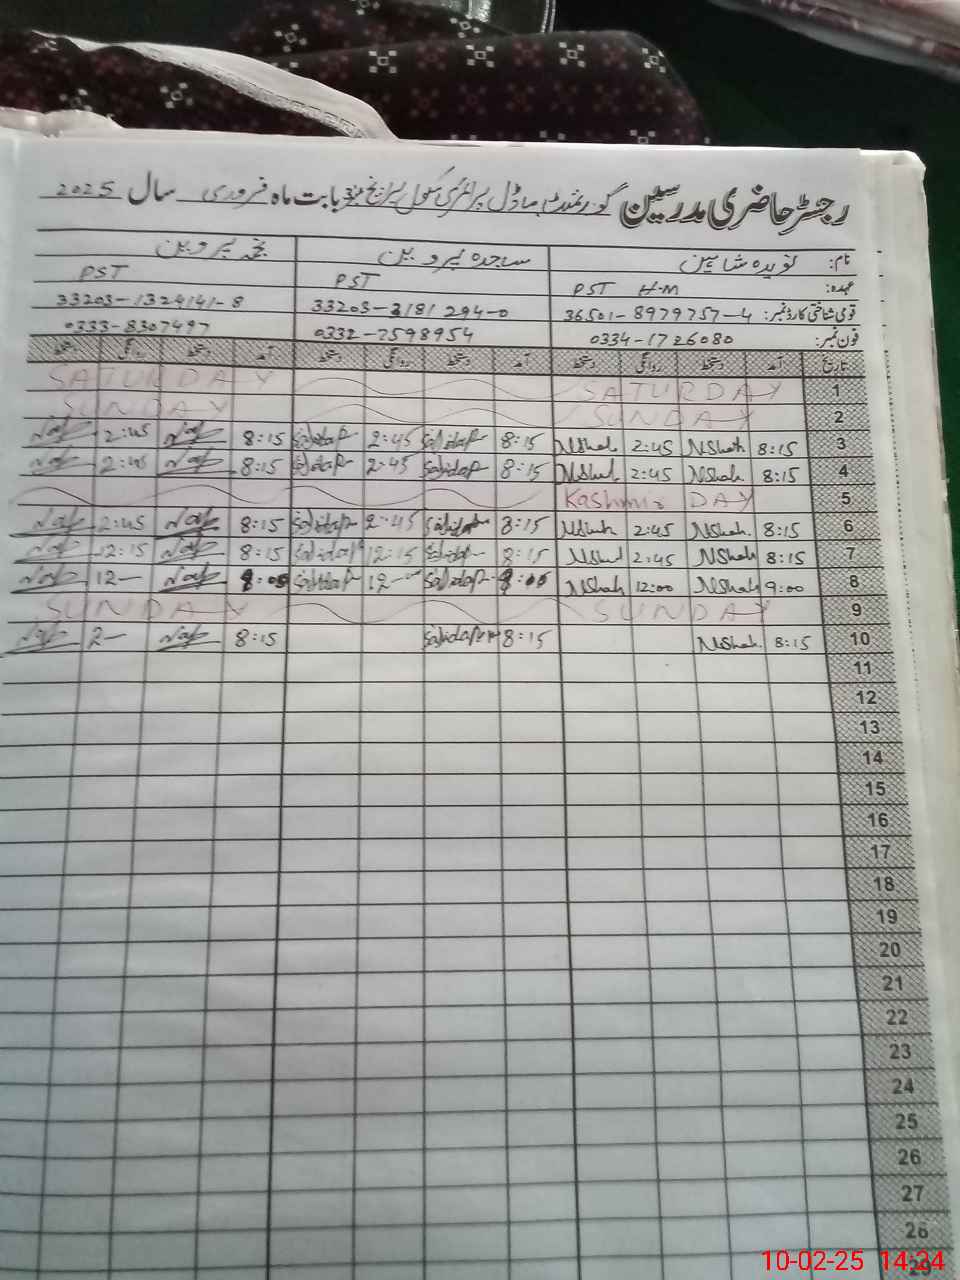 رجسٹر حاضری مدرسین گورنمنٹ ماڈل پرائمری سکول بابت ماہ فروری سال 2025
نام: نویدہ شاہین ساجدہ پروین نجمہ پروین
عہدہ: PST H-M PST PST
قومی شناختی کارڈ نمبر: 36501-8979757-4 33203-3181294-0 33203-1324141-8
فون نمبر: 0334-1726080 0332-7598954 0333-8307497
تاریخ آمد دستخط روانگی دستخط آمد دستخط روانگی دستخط آمد دستخط روانگی دستخط
1 SATURDAY SATURDAY
2 SUNDAY SUNDAY
3 8:15 NShah 2:45 NShah 8:15 SajidaP 2:45 SajidaP 8:15 2:45
4 8:15 NShah 2:45 NShah 8:15 SajidaP 2:45 SajidaP 8:15 2:45
5 Kashmir DAY
6 8:15 NShah 2:45 NShah 8:15 SajidaP 2:45 SajidaP 8:15 2:45
7 8:15 NShah 2:45 NShah 8:15 SajidaP 12:15 SajidaP 8:15 12:15
8 9:00 NShah 12:00 NShah SajidaP 12- SajidaP 12-
9 SUNDAY SUNDAY
10 8:15 NShah 8:15 SajidaP 8:15 2-
11
12
13
14
15
16
17
18
19
20
21
22
23
24
25
26
27
28
29
10-02-25 14:24